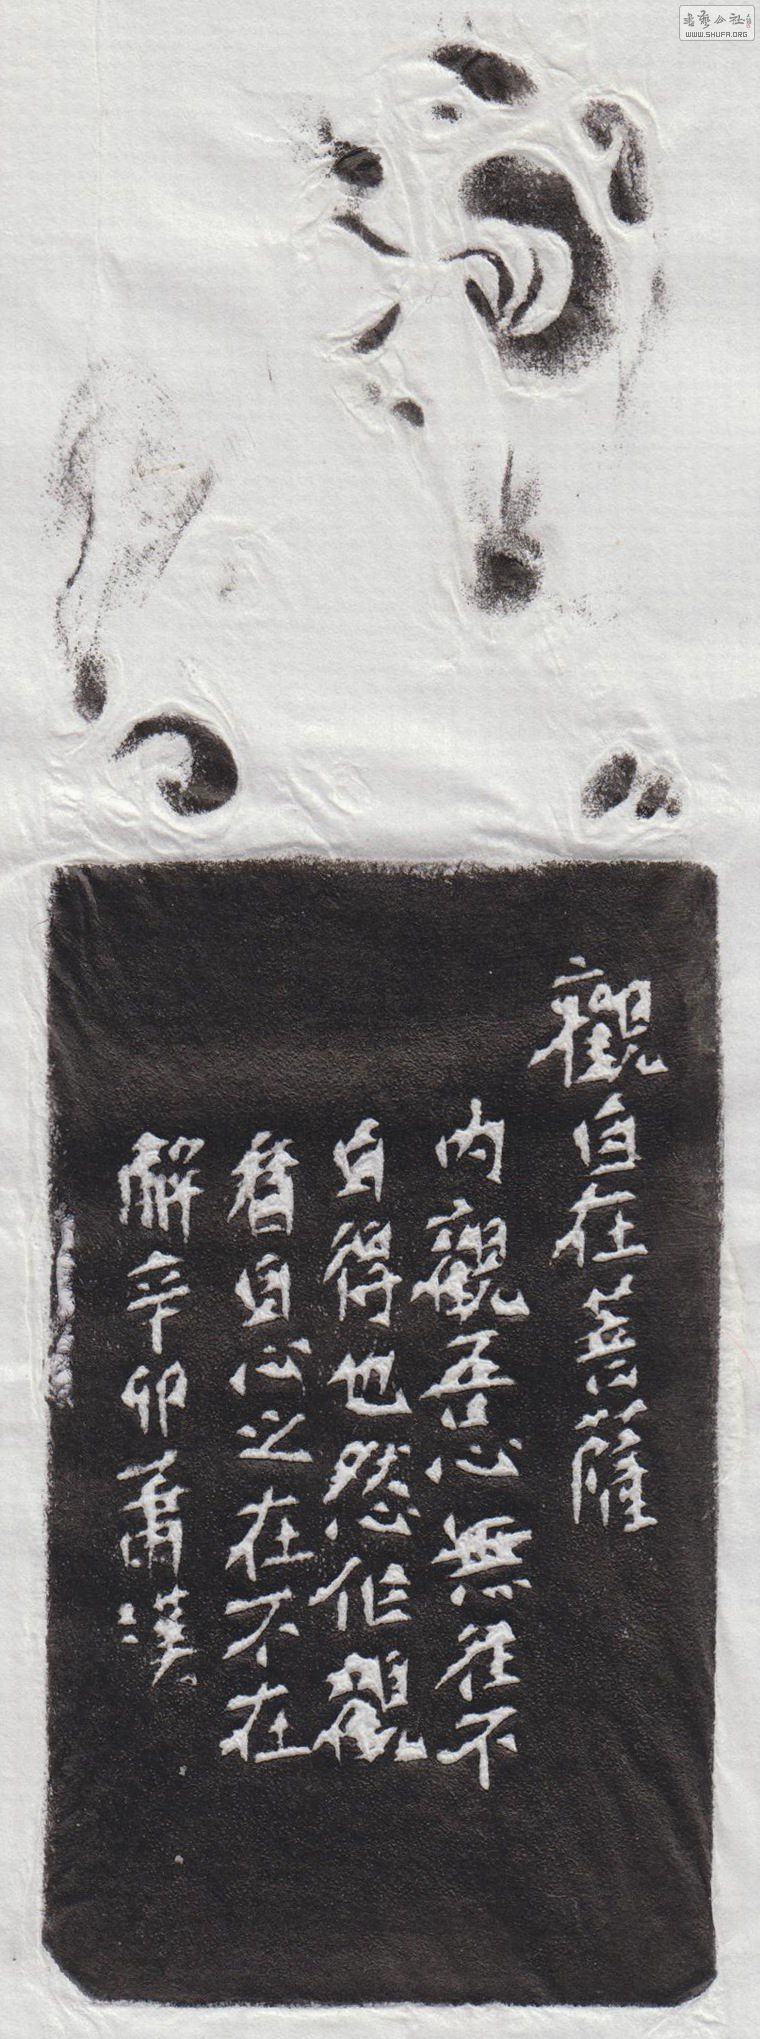 書藝公社
WWW.SHUFA.ORG
觀自在菩薩
內觀吾心無往不
自得也然作觀
看自心之在不在
解辛卯蕭漢